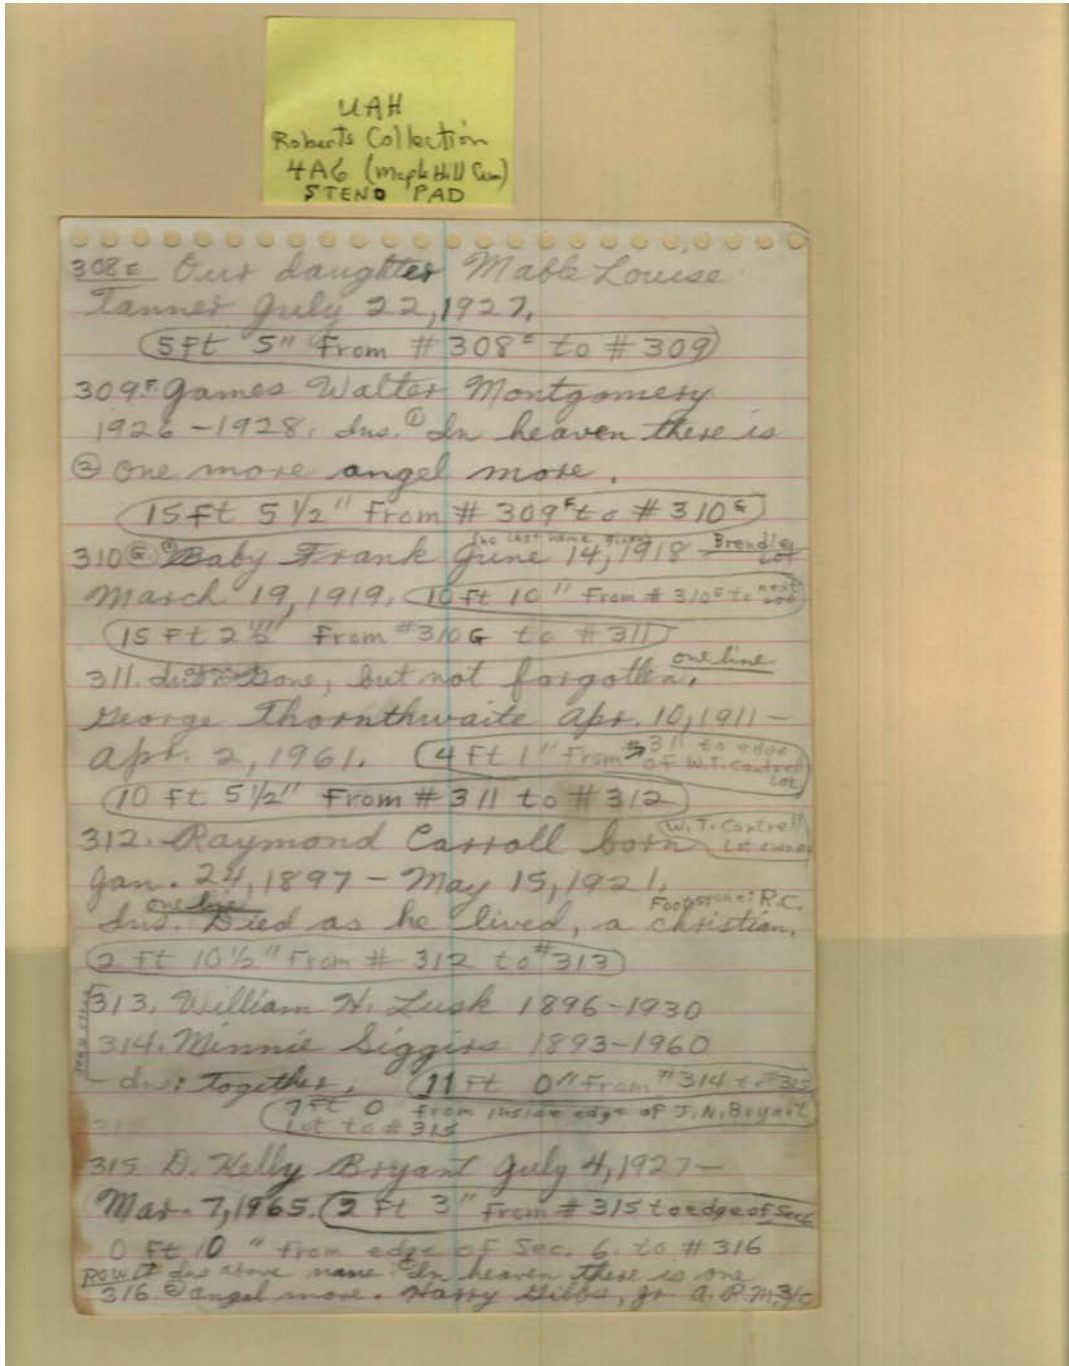 UAH
Roberts Collection
4A6 (Maple Hill Cem)
STENO PAD
308E Our daughter Mable Louise
Tanner July 22, 1927.
5 Ft 5" From # 308E to # 309
309F. James Walter Montgomery
1926-1928. Ins. ① In heaven there is
② one more angel more.
15 Ft 5 1/2" From # 309F to # 310G
(no last name given)
310G. Baby Frank June 14, 1918 - Brendle Lot
March 19, 1919. 10 Ft 10" From # 310G to next Lot
15 Ft 2 1/2" From # 310G to # 311
311. Ins. Gone, but not forgotten. one line
George Thornthwaite Apr. 10, 1911 -
Apr. 2, 1961. 4 Ft 1" From # 311 to edge of W.T. Cantrell Lot
10 Ft 5 1/2" From # 311 to # 312
312. Raymond Carroll born W.T. Cantrell Lot owner
Jan. 24, 1897 - May 15, 1921.
one line Footstone: R.C.
Ins. Died as he lived, a christian.
2 Ft 10 1/2" From # 312 to # 313
313. William H. Lusk 1896-1930
314. Minnie Siggirs 1893-1960
Ins: Together. 11 Ft 0" From # 314 to # 315
7 Ft 0 from inside edge of J.N. Bryant
Lot to # 315
315 D. Kelly Bryant July 4, 1927 -
Mar. 7, 1965. 2 Ft 3" From # 315 to edge of Sec 6
0 Ft 10" from edge of Sec. 6. to # 316
ROW Ins above name ① In heaven there is one
316 ② angel more. Harry Gibbs, Jr. A.R.M. 3/c